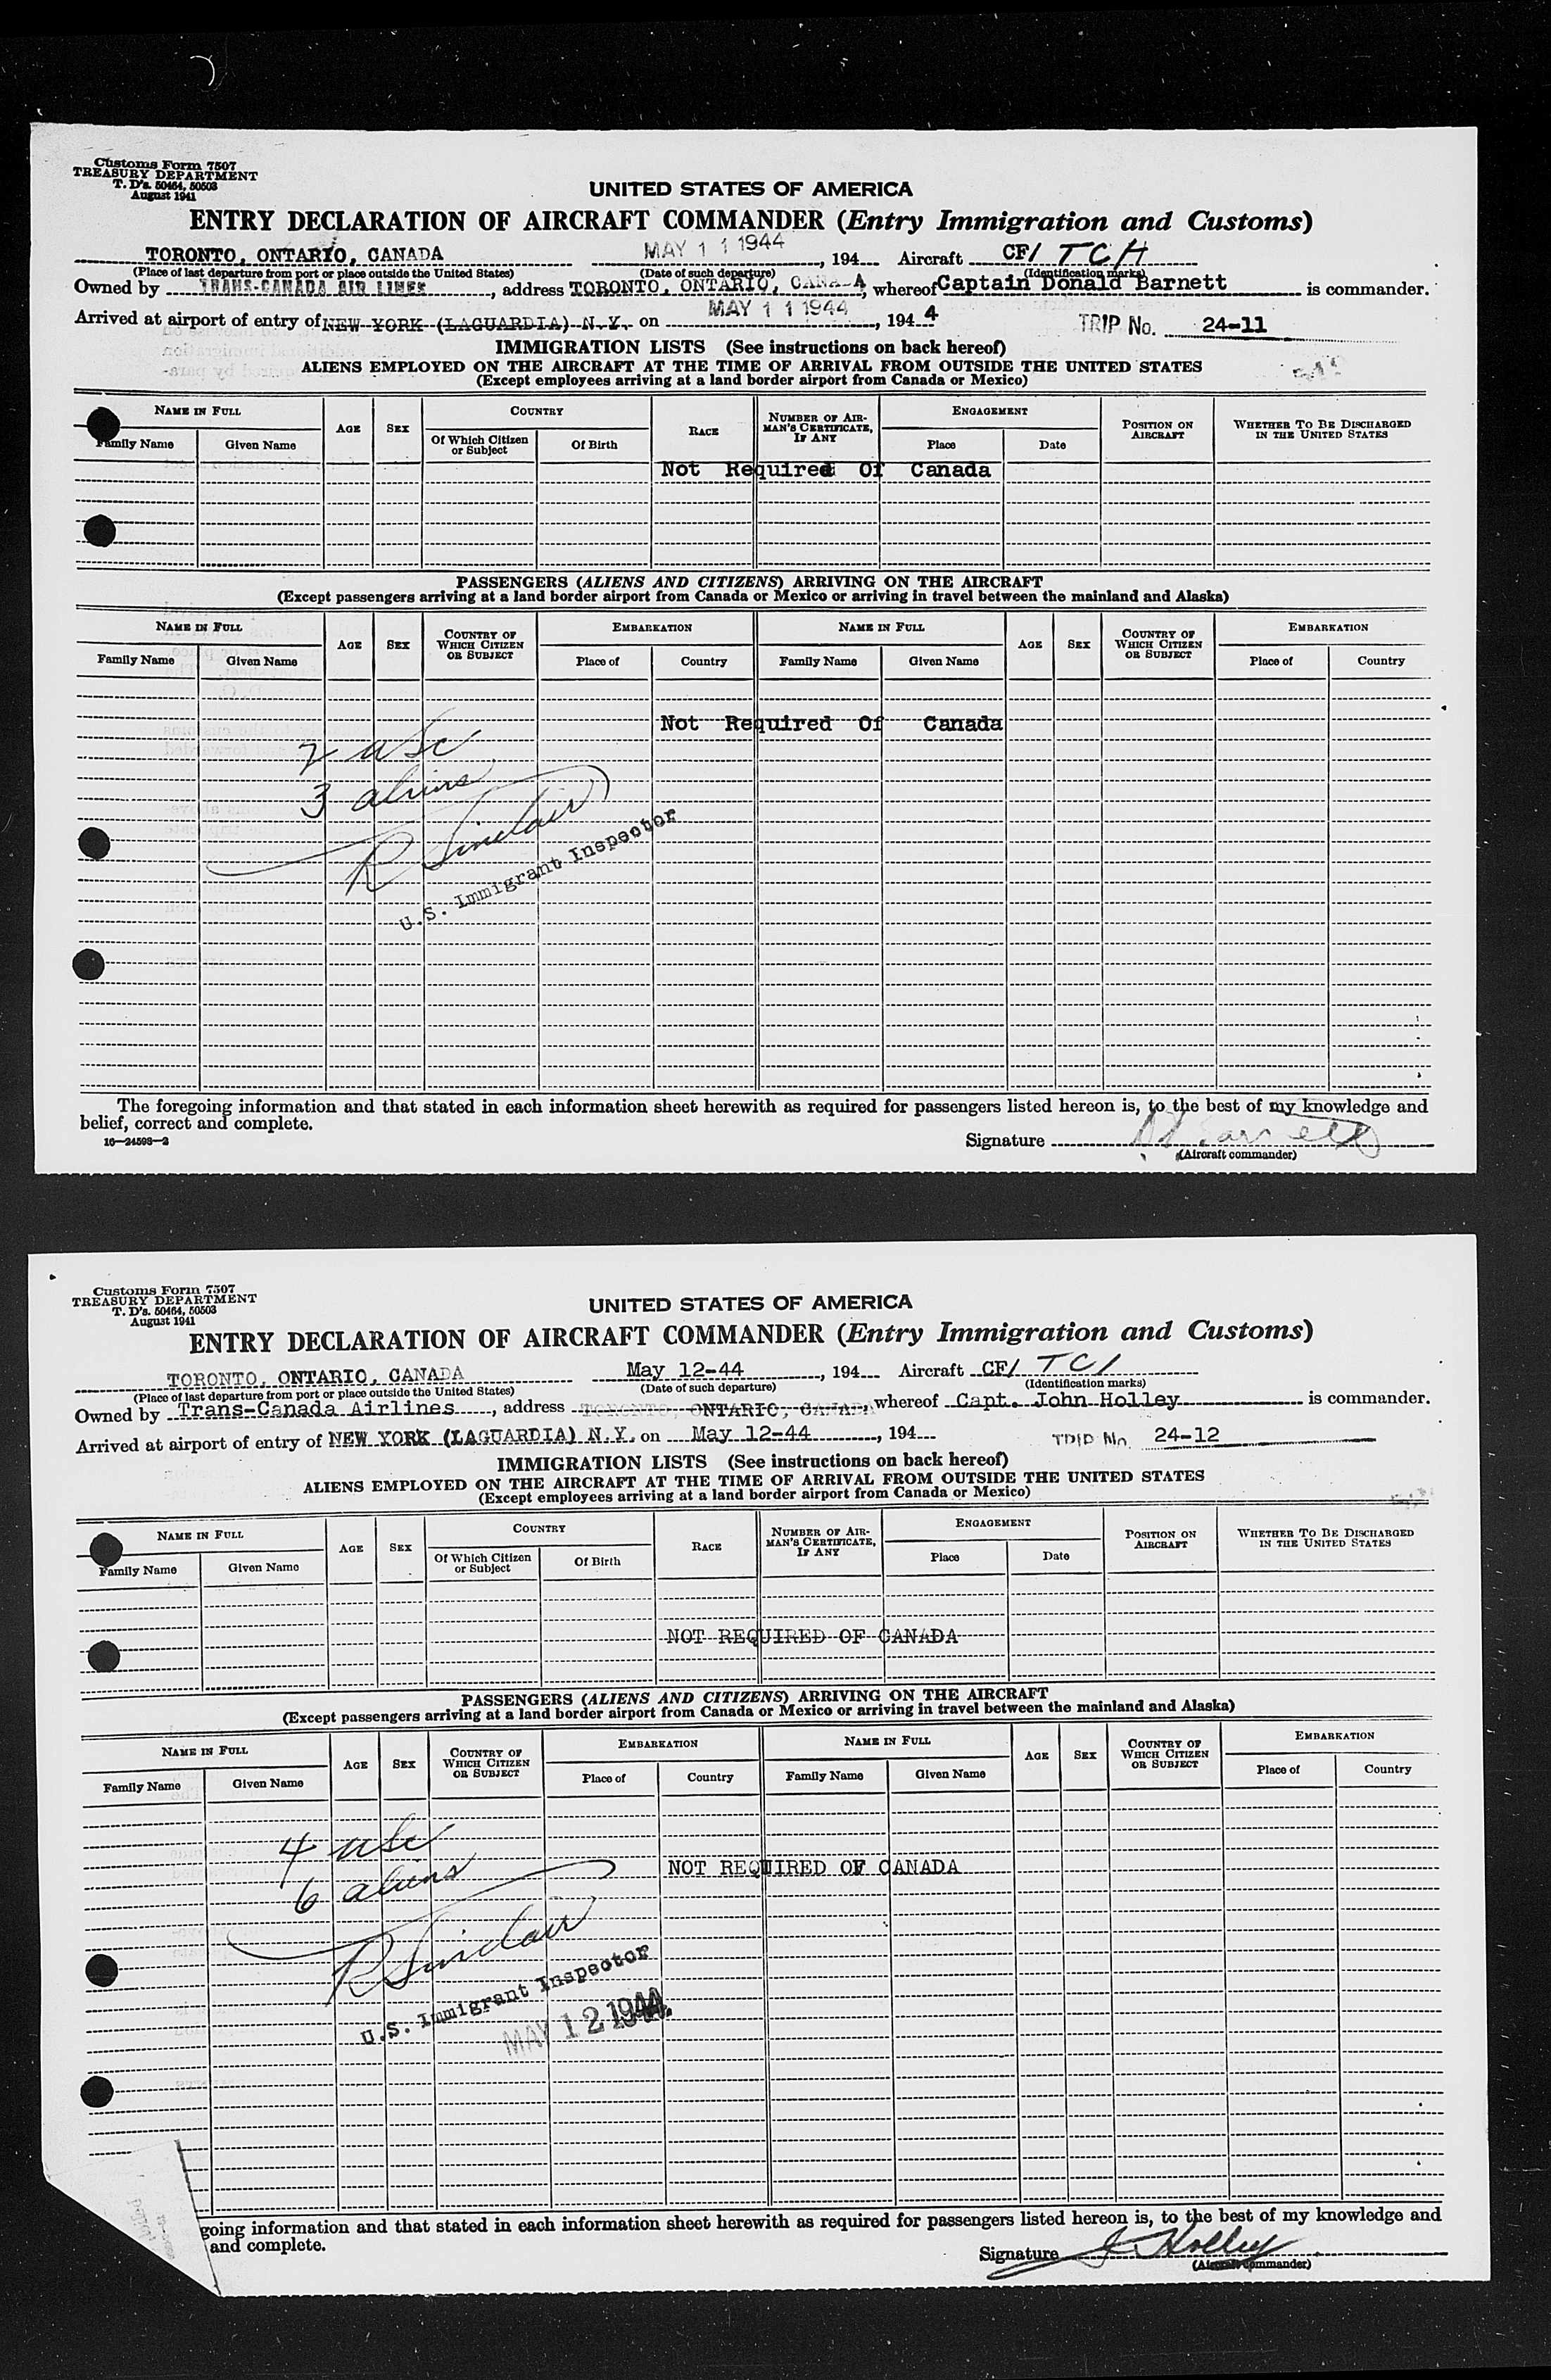 Customs Form 7507
TREASURY DEPARTMENT
T. D's. 50464, 50503
August 1941
UNITED STATES OF AMERICA
ENTRY DECLARATION OF AIRCRAFT COMMANDER (Entry Immigration and Customs)
TORONTO, ONTARIO, CANADA MAY 11 1944, 194 Aircraft CF/ TCH
(Place of last departure from port or place outside the United States) (Date of such departure) (Identification marks)
Owned by TRANS-CANADA AIR LINES, address TORONTO, ONTARIO, CANA-A, whereof Captain Donald Barnett is commander.
Arrived at airport of entry of NEW YORK (LAGUARDIA) N.Y. on MAY 11 1944, 1944 TRIP No. 24-11
IMMIGRATION LISTS (See instructions on back hereof)
ALIENS EMPLOYED ON THE AIRCRAFT AT THE TIME OF ARRIVAL FROM OUTSIDE THE UNITED STATES
(Except employees arriving at a land border airport from Canada or Mexico)
NAME IN FULL AGE SEX COUNTRY RACE NUMBER OF AIRMAN'S CERTIFICATE, IF ANY ENGAGEMENT POSITION ON AIRCRAFT WHETHER TO BE DISCHARGED IN THE UNITED STATES
Family Name Given Name Of Which Citizen or Subject Of Birth Place Date
Not Required Of Canada
PASSENGERS (ALIENS AND CITIZENS) ARRIVING ON THE AIRCRAFT
(Except passengers arriving at a land border airport from Canada or Mexico or arriving in travel between the mainland and Alaska)
NAME IN FULL AGE SEX COUNTRY OF WHICH CITIZEN OR SUBJECT EMBARKATION NAME IN FULL AGE SEX COUNTRY OF WHICH CITIZEN OR SUBJECT EMBARKATION
Family Name Given Name Place of Country Family Name Given Name Place of Country
Not Required Of Canada
2 usc
3 aliens
R Sinclair
U.S. Immigrant Inspector
The foregoing information and that stated in each information sheet herewith as required for passengers listed hereon is, to the best of my knowledge and
belief, correct and complete.
16—24598—2
Signature
(Aircraft commander)
Customs Form 7507
TREASURY DEPARTMENT
T. D's. 50464, 50503
August 1941
UNITED STATES OF AMERICA
ENTRY DECLARATION OF AIRCRAFT COMMANDER (Entry Immigration and Customs)
TORONTO, ONTARIO, CANADA May 12-44, 194 Aircraft CF/ TCI
(Place of last departure from port or place outside the United States) (Date of such departure) (Identification marks)
Owned by Trans-Canada Airlines, address TORONTO, ONTARIO, CANADA, whereof Capt. John Holley is commander.
Arrived at airport of entry of NEW YORK (LAGUARDIA) N.Y. on May 12-44, 194 TRIP No. 24-12
IMMIGRATION LISTS (See instructions on back hereof)
ALIENS EMPLOYED ON THE AIRCRAFT AT THE TIME OF ARRIVAL FROM OUTSIDE THE UNITED STATES
(Except employees arriving at a land border airport from Canada or Mexico)
NAME IN FULL AGE SEX COUNTRY RACE NUMBER OF AIRMAN'S CERTIFICATE, IF ANY ENGAGEMENT POSITION ON AIRCRAFT WHETHER TO BE DISCHARGED IN THE UNITED STATES
Family Name Given Name Of Which Citizen or Subject Of Birth Place Date
NOT REQUIRED OF CANADA
PASSENGERS (ALIENS AND CITIZENS) ARRIVING ON THE AIRCRAFT
(Except passengers arriving at a land border airport from Canada or Mexico or arriving in travel between the mainland and Alaska)
NAME IN FULL AGE SEX COUNTRY OF WHICH CITIZEN OR SUBJECT EMBARKATION NAME IN FULL AGE SEX COUNTRY OF WHICH CITIZEN OR SUBJECT EMBARKATION
Family Name Given Name Place of Country Family Name Given Name Place of Country
4 usc
6 aliens
NOT REQUIRED OF CANADA
R Sinclair
U.S. Immigrant Inspector
MAY 12 1944
going information and that stated in each information sheet herewith as required for passengers listed hereon is, to the best of my knowledge and
and complete.
Signature J. Holley
(Aircraft commander)